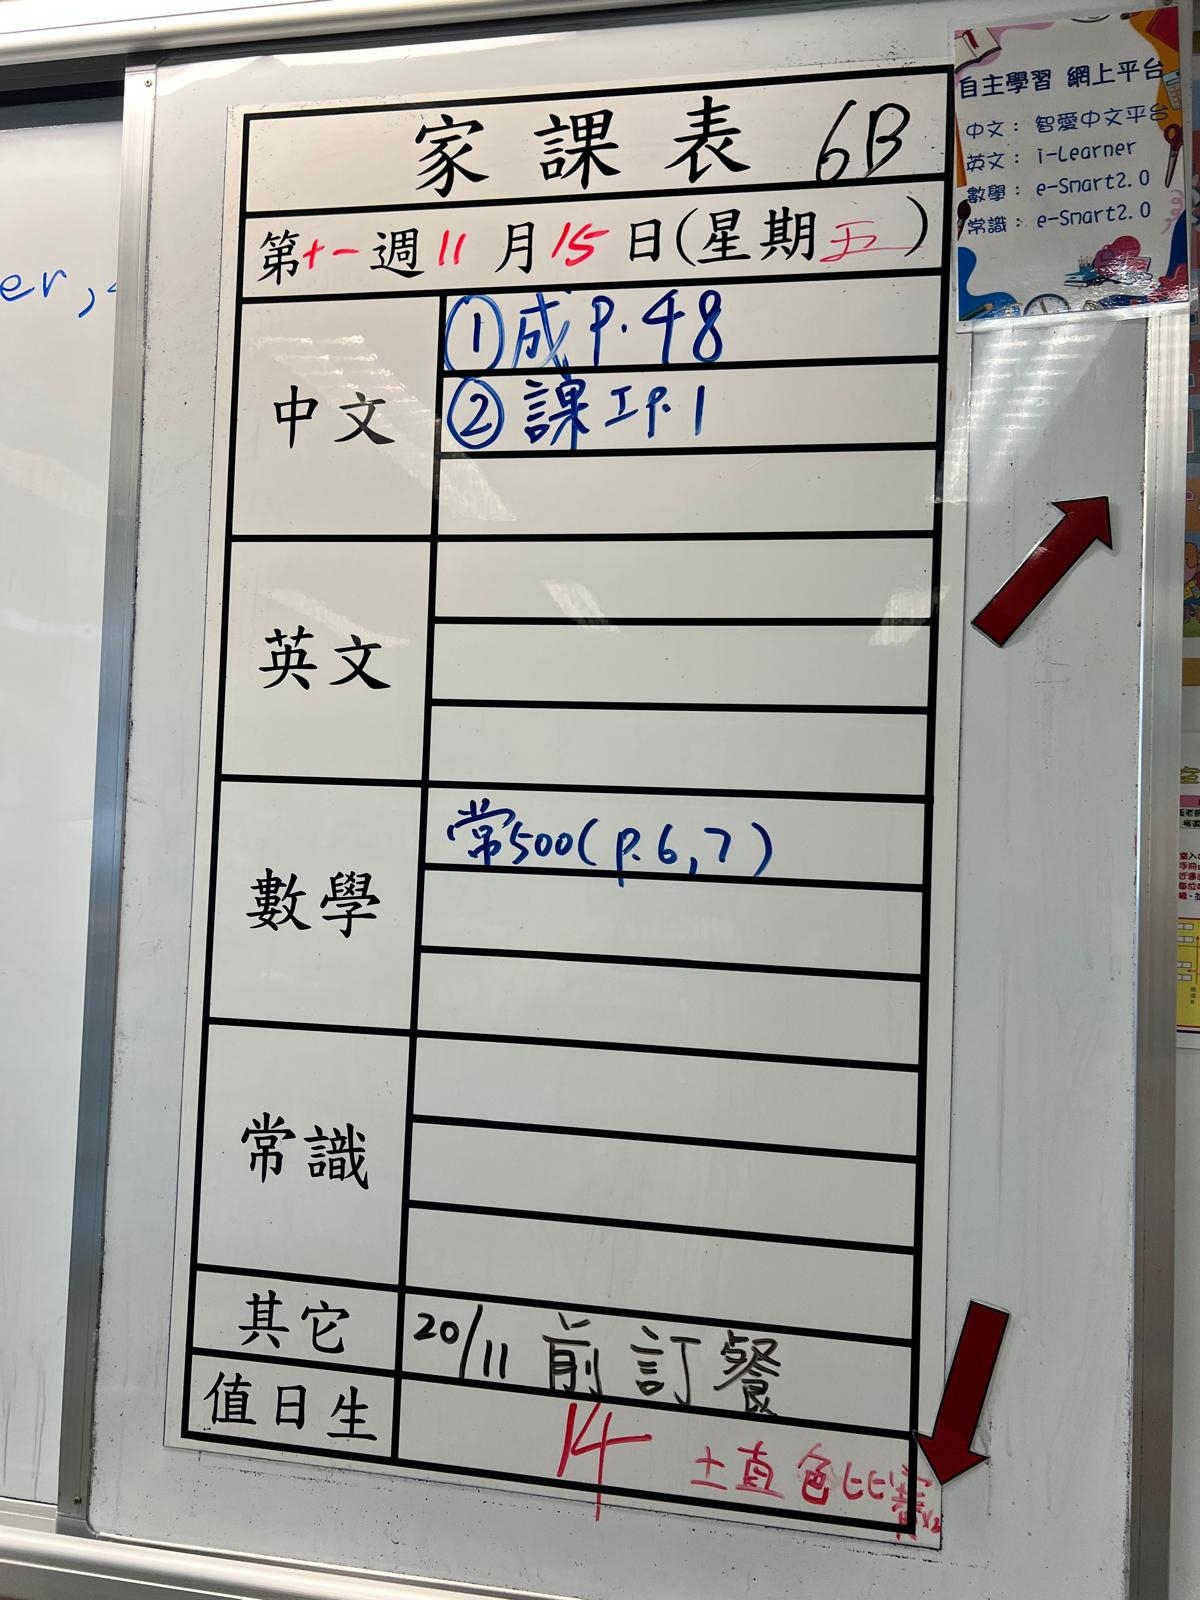 家課表 6B
第十一週 11月15日(星期五)
中文
①成 P.48
②課工P.1
英文
數學
常500(p.6,7)
常識
其它
20/11 前訂餐
值日生
14 填色比賽x2
自主學習 網上平台
中文： 智愛中文平台
英文： i-Learner
數學： e-Smart2.0
常識： e-Smart2.0
er,